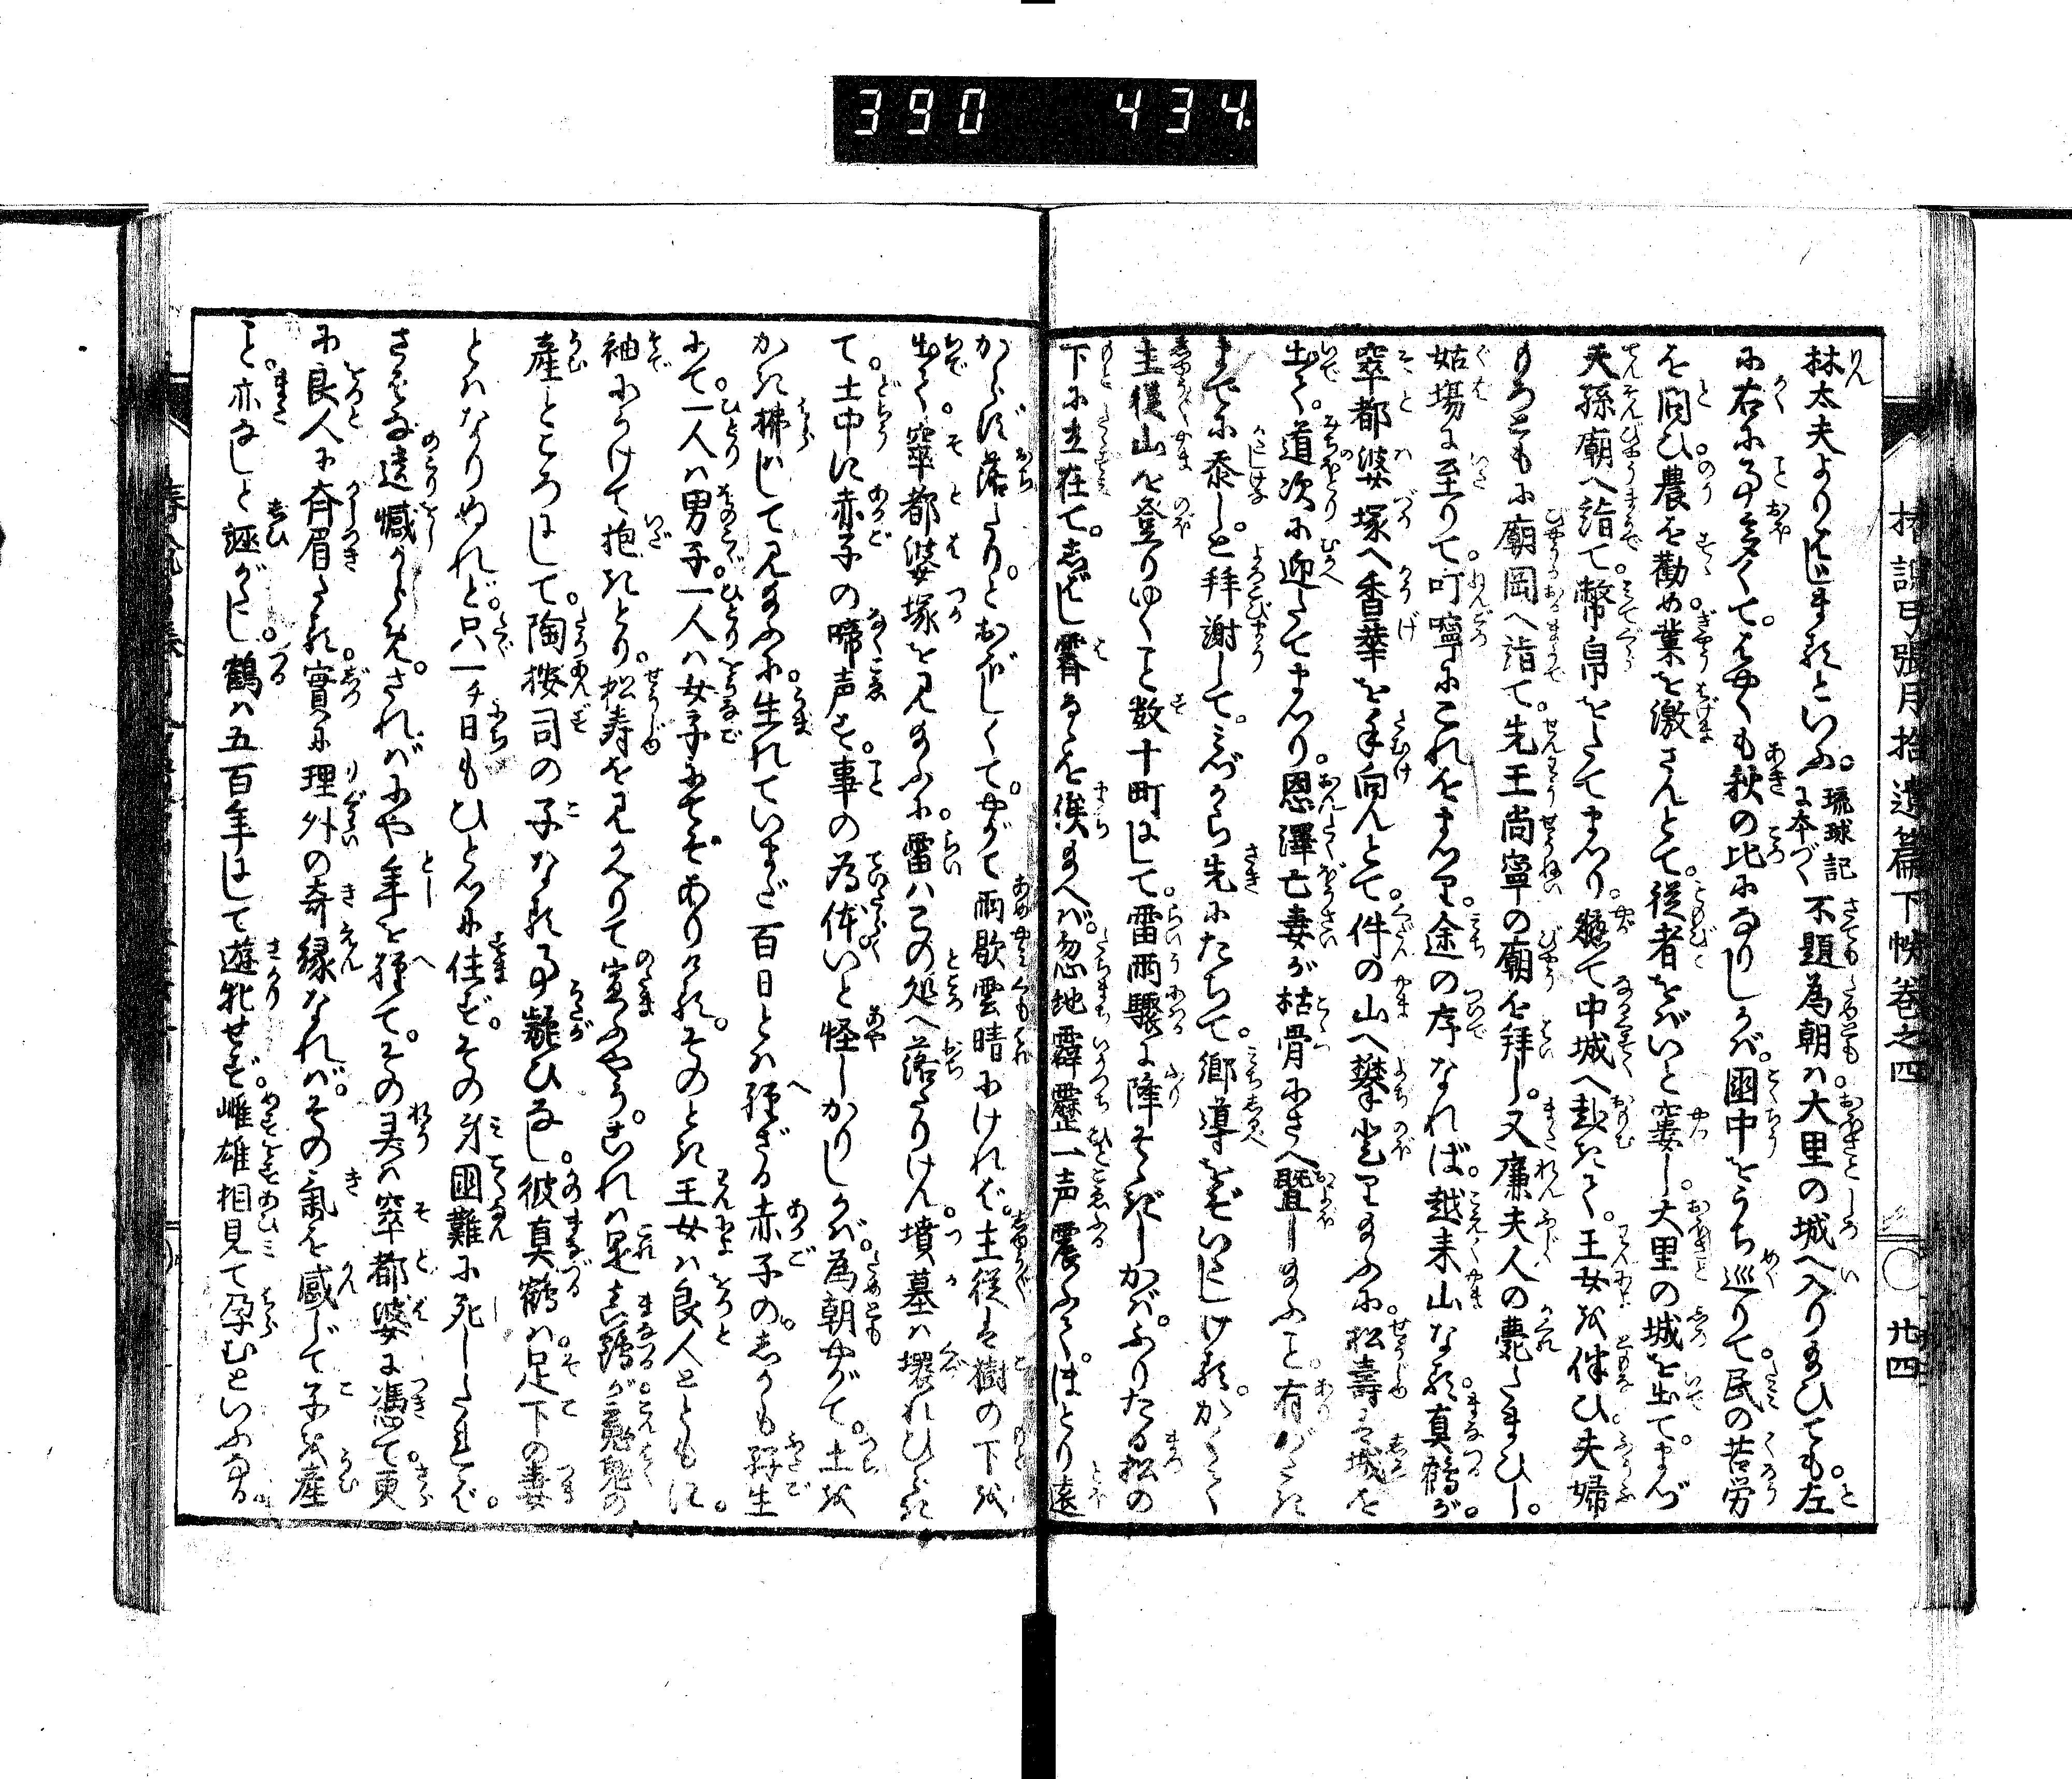 390 434.
椿説弓張月拾遺篇下帙巻之四 ○ 廿四
林太夫よりはじまるといふ。琉球記に本づく不題為朝は大里の城へ入り給ひても。左
に右に事多くて。はやくも秋の比になりしかば。国中をうち巡りて。民の苦労
を問ひ。農を勧め。業を激さんとて。従者をばいと窶し。大里の城を出て。まづ
天孫廟へ詣で。幣帛をたてまつり。軈て中城へ赴きて。王女を伴ひ。夫婦
もろともに廟岡へ詣て。先王尚寧の廟を拝し。又廉夫人の薨たまひし。
姑場に至りて。叮嚀にこれをまつり。途の序なれば。越来山なる。真鶴が。
窣都婆塚へ香華を手向んとて。件の山へ攀登り給ふに。松壽は城を
出て。道次に迎たてまつり。恩澤亡妻が枯骨にさへ曁し給ふこと。有がたき
までに忝し。と拝謝して。みづから先にたちて。郷導をぞいたしける。かくて
主従山を登りゆくこと数十町にして。雷雨驟に降そゝぎしかば。ふりたる松の
下に立在て。しばし霽るゝを俟給へば。忽地霹靂一声震ふて。ほとり遠
からず落たり。とおぼしくて。やがて雨歇雲晴にければ。主従は樹の下を
出て。窣都婆塚を見給ふに。雷はこの処へ落たりけん。墳墓は壊れひらき
て。土中に赤子の啼声す。事の為体いと怪しかりしかば。為朝やがて。土を
かき拂はして見給ふに。生れていまだ百日とは經ざる赤子の。しかも孖生
にて。一人は男子。一人は女子にてぞありける。そのとき王女は良人とともに。
袖にうけて抱きとり。松寿を見かへりて宣ふやう。これは是真鶴が冤鬼の
産ところにして。陶按司の子なる事疑ひなし。彼真鶴は。足下の妻
とはなりぬれど。只一チ日もひとつに住ず。その身国難に死したれば。
さぞな遺憾かりけめ。さればにや年を經て。その灵は窣都婆に憑て。更
に良人に斉眉たる。實に理外の奇縁なれば。その氣を感じて子を産
こと。亦なしと誣がたし。鶴は五百年にして遊牝せず。雌雄相見て孕むといふなる